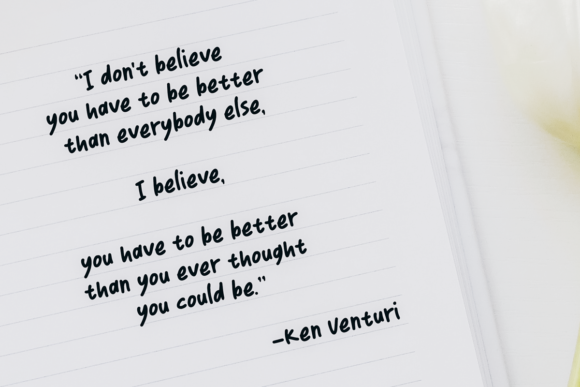 "I don't believe
you have to be better
than everybody else,
I believe,
you have to be better
than you ever thought
you could be."
-Ken Venturi